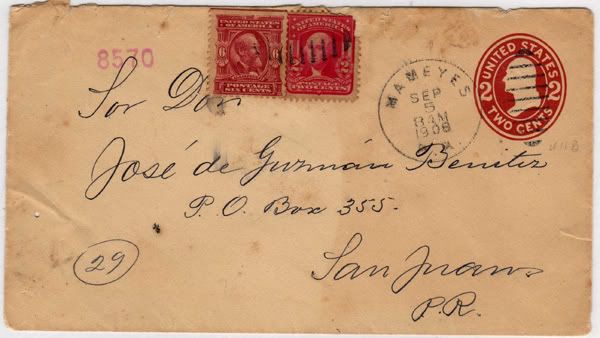 8570
UNITED STATES
OF AMERICA
6 6
POSTAGE
SIX CENTS
2 2
POSTAGE
TWO CENTS
MAMEYES
SEP
5
8 AM
1908
UNITED STATES
2 2
TWO CENTS
Sor Don
José de Guzmán Benitez
P. O. Box 355.
29
San Juan
P.R.